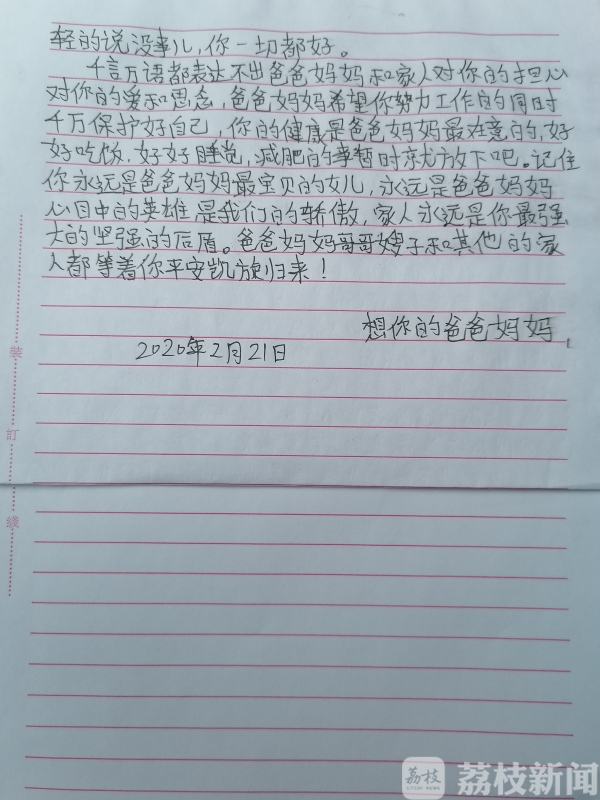 轻的说没事儿，你一切都好。
千言万语都表达不出爸爸妈妈和家人对你的担心
对你的爱和思念，爸爸妈妈希望你努力工作的同时
千万保护好自己，你的健康是爸爸妈妈最在意的，好
好吃饭，好好睡觉，减肥的事暂时就放下吧。记住
你永远是爸爸妈妈最宝贝的女儿，永远是爸爸妈妈
心目中的英雄是我们的骄傲，家人永远是你最强
大的坚强的后盾。爸爸妈妈哥哥嫂子和其他的家
人都等着你平安凯旋归来！
想你的爸爸妈妈
2020年2月21日
装
訂
綫
荔枝
LITCHI NEWS
荔枝新闻